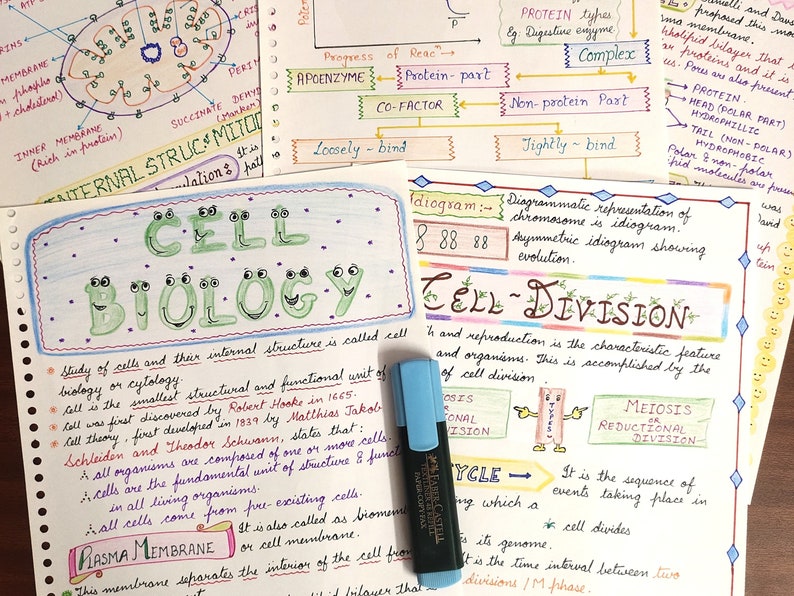 CRINS
MEMBRANE
+ cholesterol)
INNER MEMBRANE
(Rich in protein)
SUCCINATE
(Marker)
INTERNAL STRUC
It is
Progress of Reacⁿ
P
PROTEIN types
Eg: Digestive enzyme.
Complex
APOENZYME
Protein-part
CO-FACTOR
Non-protein Part
Loosely ~ bind
Tightly ~ bind
proposed this mod
membrane.
bilayer that
proteins and it is
Pores are also present
PROTEIN.
HEAD (POLAR PART)
HYDROPHILLIC
TAIL (NON-POLAR)
HYDROPHOBIC
Polar & non-polar
molecules are present
was
David
up
CELL
BIOLOGY
Study of cells and their internal structure is called cell
biology or cytology.
Cell is the smallest structural and functional unit of
Cell was first discovered by Robert Hooke in 1665.
Cell theory, first developed in 1839 by Matthias Jakob
Schleiden and Theodor Schwann, states that:
∴ all organisms are composed of one or more cells.
∴ cells are the fundamental unit of structure &
in all living organisms.
∴ all cells come from pre-existing cells.
PLASMA MEMBRANE
It is also called as
or cell membrane.
This membrane separates the interior of the cell from
bilayer that
Idiogram:-
Diagrammatic representation of
chromosome is idiogram.
8 88 88
Asymmetric idiogram showing
evolution.
CELL~DIVISION
and reproduction is the characteristic feature
and organisms. This is accomplished by the
of cell division.
TYPES
MEIOSIS
OR
REDUCTIONAL
DIVISION
CYCLE →
It is the sequence of
events taking place in
which a
cell divides
its genome.
It is the time interval between two
divisions / M phase.
FABER-CASTELL
TEXTLINER 48 REFILL
PAPER·COPY·FAX